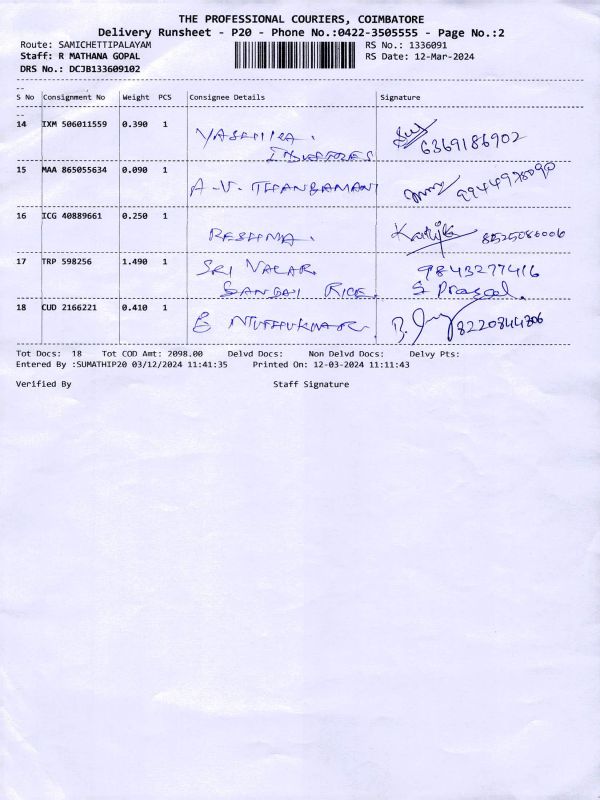 THE PROFESSIONAL COURIERS, COIMBATORE
Delivery Runsheet - P20 - Phone No.:0422-3505555 - Page No.:2
Route: SAMICHETTIPALAYAM RS No.: 1336091
Staff: R MATHANA GOPAL RS Date: 12-Mar-2024
DRS No.: DCJB133609102
S No Consignment No Weight PCS Consignee Details Signature
14 IXM 506011559 0.390 1
6369186902
15 MAA 865055634 0.090 1 A.V. THANGAMANI
16 ICG 40889661 0.250 1 RESHMA. Karthik
17 TRP 598256 1.490 1 SRI 9843277416
RICE.
18 CUD 2166221 0.410 1
Tot Docs: 18 Tot COD Amt: 2098.00 Delvd Docs: Non Delvd Docs: Delvy Pts:
Entered By :SUMATHIP20 03/12/2024 11:41:35 Printed On: 12-03-2024 11:11:43
Verified By Staff Signature